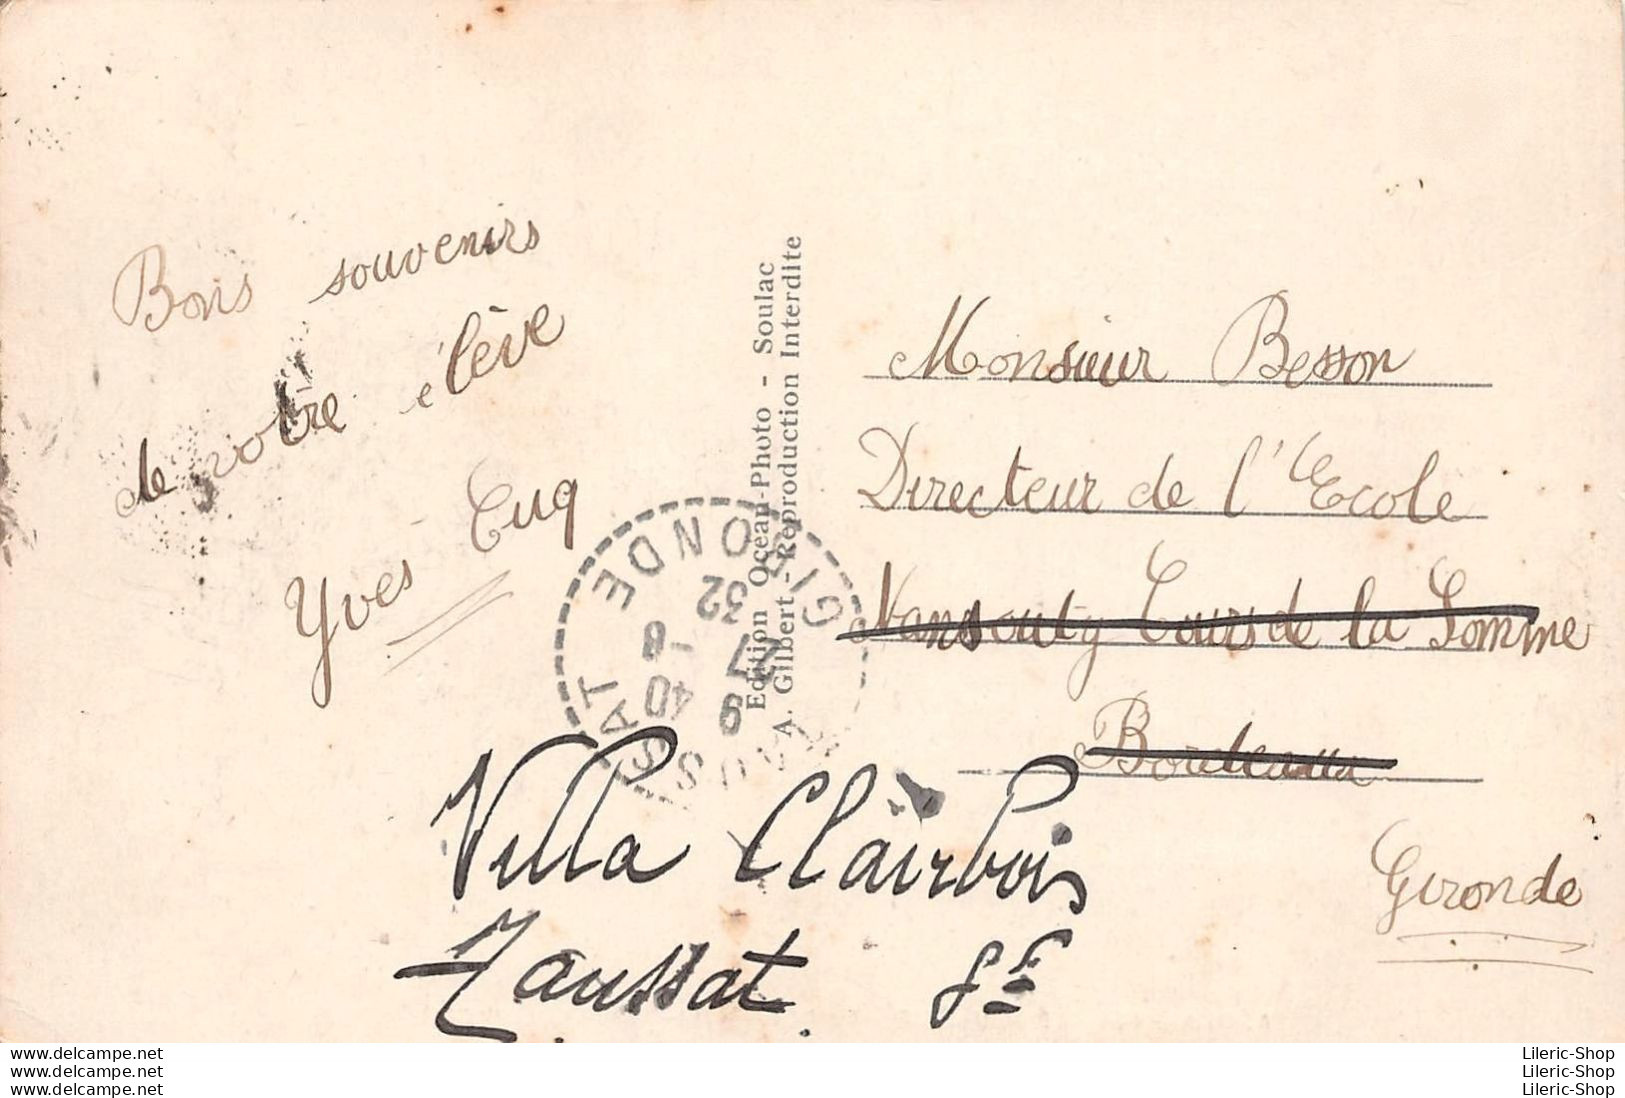 Bons souvenirs
de votre élève
Yves Cuq
Edition Océan-Photo - Soulac
A. Gilbert - Reproduction Interdite
Monsieur Besson
Directeur de l'Ecole
Nansouty Cours de la Somme
Bordeaux
Gironde
GIRONDE
SSAT
9 40
27 - 8
32
Villa Clairbois
Taussat Gde
www.delcampe.net
www.delcampe.net
www.delcampe.net
Lileric-Shop
Lileric-Shop
Lileric-Shop